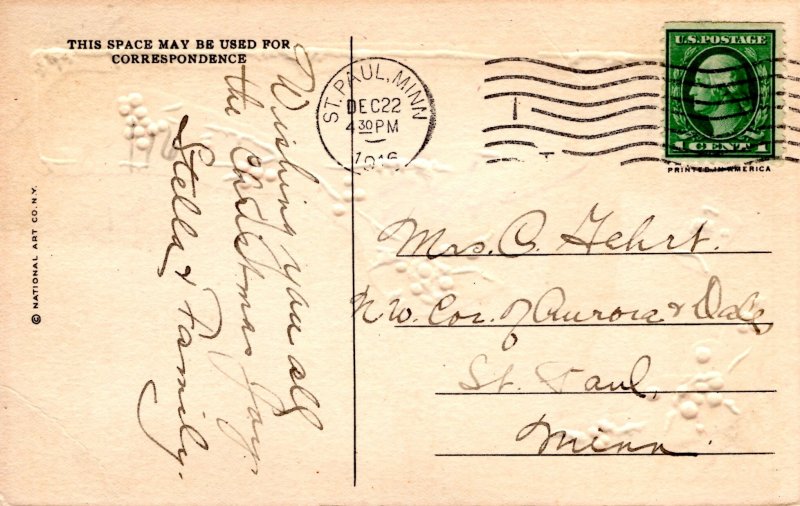 THIS SPACE MAY BE USED FOR
CORRESPONDENCE
Wishing you all
the Christmas Joys.
Stella & Family.
© NATIONAL ART CO. N.Y.
ST. PAUL, MINN
DEC 22
4 30 PM
1916
U.S. POSTAGE
1 CENT 1
PRINTED IN AMERICA
Mrs. C. Gehrt.
N W. Cor. of Aurora & Dale
St. Paul,
Minn.